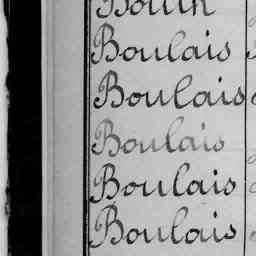 Boulais
Boulais
Boulais
Boulais
Boulais